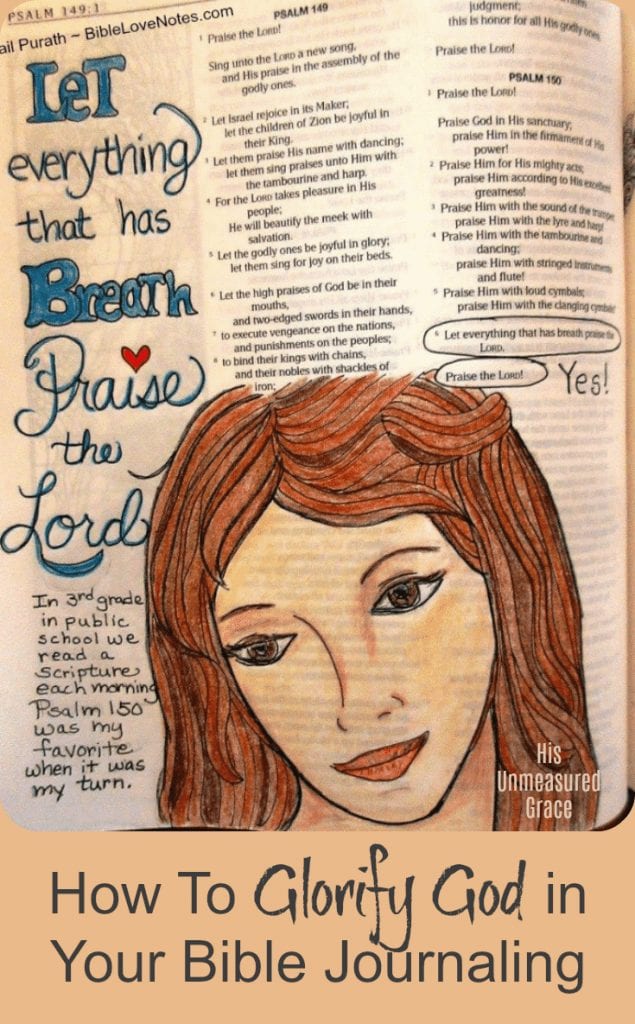 PSALM 149:1
ail Purath ~ BibleLoveNotes.com
Let
everything
that has
Breath
Praise
the
Lord
In 3rd grade
in public
school we
read a
Scripture
each morning
Psalm 150
was my
favorite
when it was
my turn.
PSALM 149
1 Praise the LORD!
Sing unto the LORD a new song,
and His praise in the assembly of the
godly ones.
2 Let Israel rejoice in its Maker;
let the children of Zion be joyful in
their King.
3 Let them praise His name with dancing;
let them sing praises unto Him with
the tambourine and harp.
4 For the LORD takes pleasure in His
people;
He will beautify the meek with
salvation.
5 Let the godly ones be joyful in glory;
let them sing for joy on their beds.
6 Let the high praises of God be in their
mouths,
and two-edged swords in their hands,
7 to execute vengeance on the nations,
and punishments on the peoples;
8 to bind their kings with chains,
and their nobles with shackles of
iron;
judgment;
this is honor for all His godly ones.
Praise the LORD!
PSALM 150
1 Praise the LORD!
Praise God in His sanctuary;
praise Him in the firmament of His
power!
2 Praise Him for His mighty acts;
praise Him according to His excellent
greatness!
3 Praise Him with the sound of the trumpet
praise Him with the lyre and harp!
4 Praise Him with the tambourine and
dancing;
praise Him with stringed instruments
and flute!
5 Praise Him with loud cymbals;
praise Him with the clanging cymbals!
6 Let everything that has breath praise the
LORD.
Praise the LORD!
Yes!
His
Unmeasured
Grace
How To Glorify God in
Your Bible Journaling